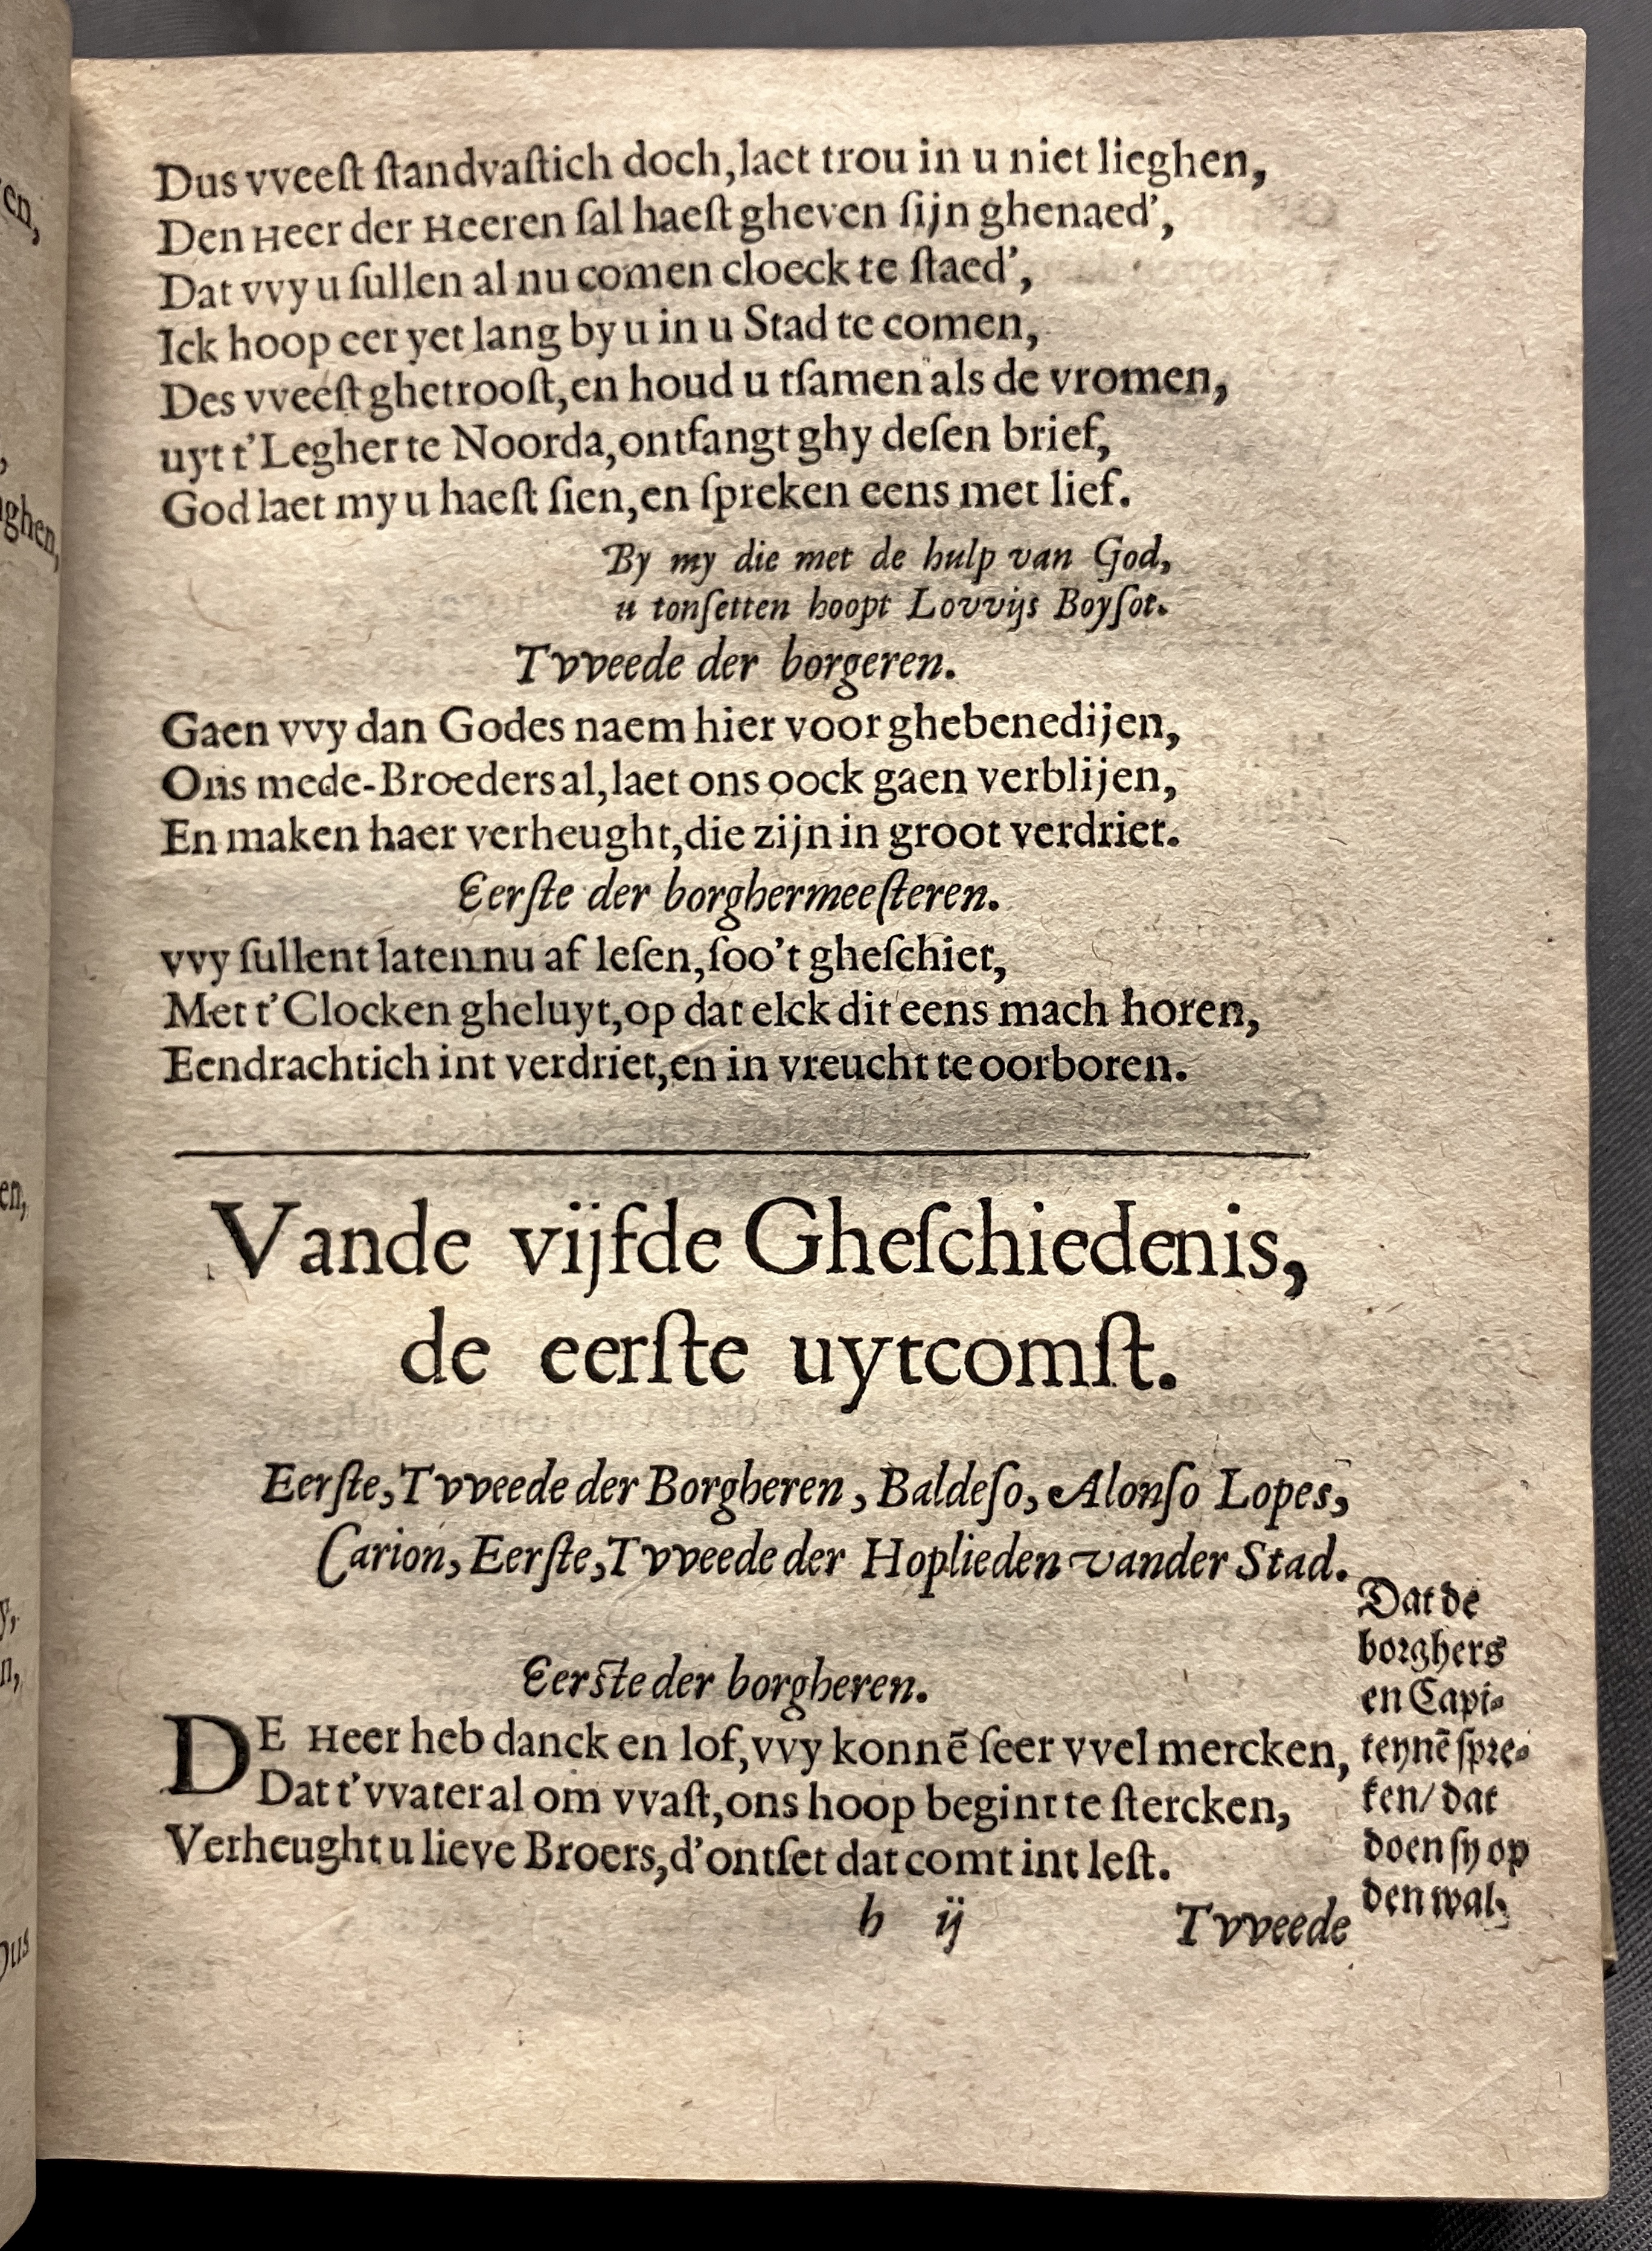 Dus vveeſt ſtandvaſtich doch,laet trou in u niet lieghen,
Den Heer der Heeren ſal haeſt gheven ſijn ghenaed’,
Dat vvy u ſullen al nu comen cloeck te ſtaed’,
Ick hoop eer yet lang by u in u Stad te comen,
Des vveeſt ghetrooſt,en houd u tſamen als de vromen,
uyt t’Legher te Noorda,ontfangt ghy deſen brief,
God laet my u haeſt ſien,en ſpreken eens met lief.
By my die met de hulp van God,
u tonſetten hoopt Lovvijs Boyſot.
Tvveede der borgeren.
Gaen vvy dan Godes naem hier voor ghebenedijen,
Ons mede-Broeders al,laet ons oock gaen verblijen,
En maken haer verheught,die zijn in groot verdriet.
Eerſte der borghermeeſteren.
vvy ſullent laten nu af leſen,ſoo’t gheſchiet,
Met t’Clocken gheluyt,op dat elck dit eens mach horen,
Eendrachtich int verdriet,en in vreucht te oorboren.
Vande vijfde Gheſchiedenis,
de eerſte uytcomſt.
Eerſte,Tvveede der Borgheren, Baldeſo, Alonſo Lopes,
Carion, Eerſte,Tvveede der Hoplieden vander Stad.
Eerſte der borgheren.
DE Heer heb danck en lof,vvy konnē ſeer vvel mercken,
Dat t’vvater al om vvaſt,ons hoop begint te ſtercken,
Verheught u lieve Broers,d’ontſet dat comt int leſt.
Dat de
borghers
en Capi-
teynē ſpre-
ken/ dat
doen ſy op
den wal.
h ij Tvveede